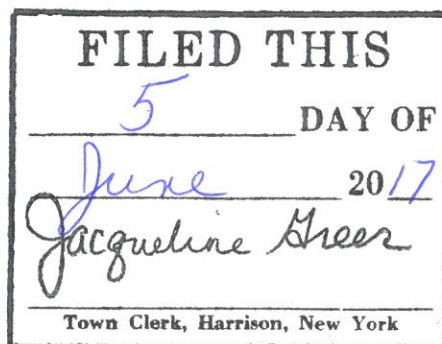 FILED THIS
5 DAY OF
June 2017
Jacqueline Greer
Town Clerk, Harrison, New York